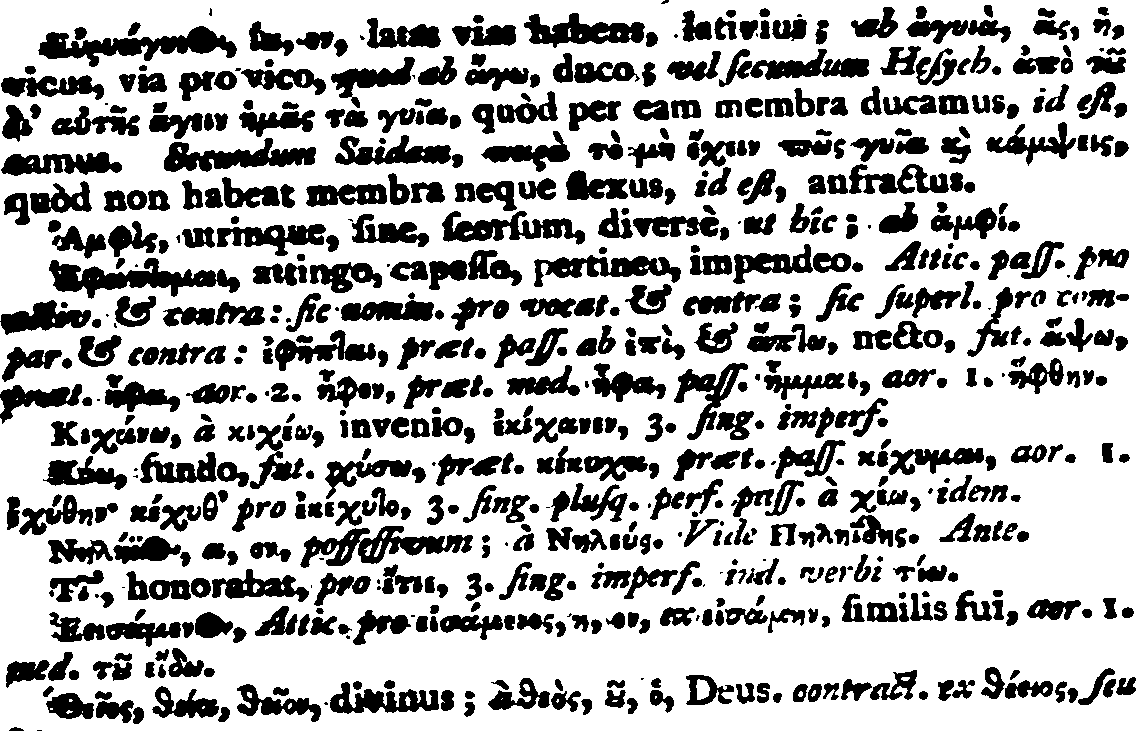 Εὐρυάγυιος, ἡ, ον, latas vias habens, lativius; ab ἀγυιὰ, ᾶς, ἡ,
vicus, via pro vico, quod ab ἄγω, duco; vel ſecundum Heſych. ἀπὸ τῦ
δι' αὐτῆς ἄγειν ἡμᾶς τὰ γυῖα, quòd per eam membra ducamus, id eſt,
eamus. Secundum Suidam, παρὰ τὸ μὴ ἔχειν πῶς γυῖα κὶ κάμψεις,
quòd non habeat membra neque flexus, id eſt, anfractus.
Ἀμφὶς, utrinque, ſine, ſeorſum, diversè, ut hîc; ab ἀμφί.
Ἐφάπτομαι, attingo, capeſſo, pertineo, impendeo. Attic. paſſ. pro
activ. & contra: ſic nomin. pro vocat. & contra; ſic ſuperl. pro com-
par. & contra: ἐφῆπται, præt. paſſ. ab ἐπὶ, & ἅπτω, necto, fut. ἅψω,
præt. ἧφα, aor. 2. ἧφον, præt. med. ἧφα, paſſ. ἧμμαι, aor. 1. ἥφθην.
Κιχάνω, à κιχέω, invenio, ἐκίχανεν, 3. ſing. imperf.
Χύω, fundo, fut. χύσω, præt. κέχυκα, præt. paſſ. κέχυμαι, aor. 1.
ἐχύθην· κέχυθ' pro ἐκέχυτο, 3. ſing. pluſq. perf. paſſ. à χέω, idem.
Νηλήϊος, α, ον, poſſeſſivum; à Νηλεύς. Vide Πηληΐδης. Ante.
Τῖ, honorabat, pro ἔτιε, 3. ſing. imperf. ind. verbi τίω.
Ἐεισάμενος, Attic. pro εἰσάμενος, η, ον, ex εἰσάμην, ſimilis fui, aor. 1.
med. τῦ εἴδω.
Θεῖος, θεία, θεῖον, divinus; à θεὸς, ῦ, ὁ, Deus. contract. ex θέειος, ſeu